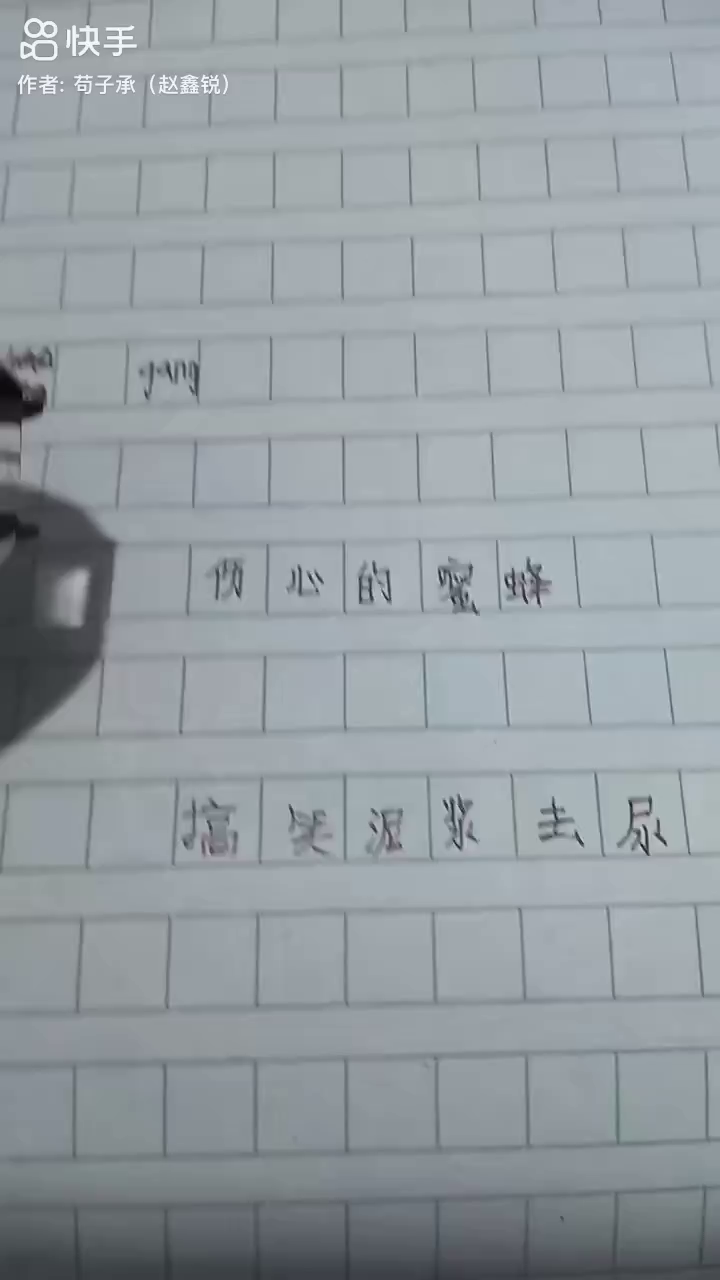 快手
作者: 苟子承（赵鑫锐）
yang
伤心的蜜蜂
搞笑泥浆去尿